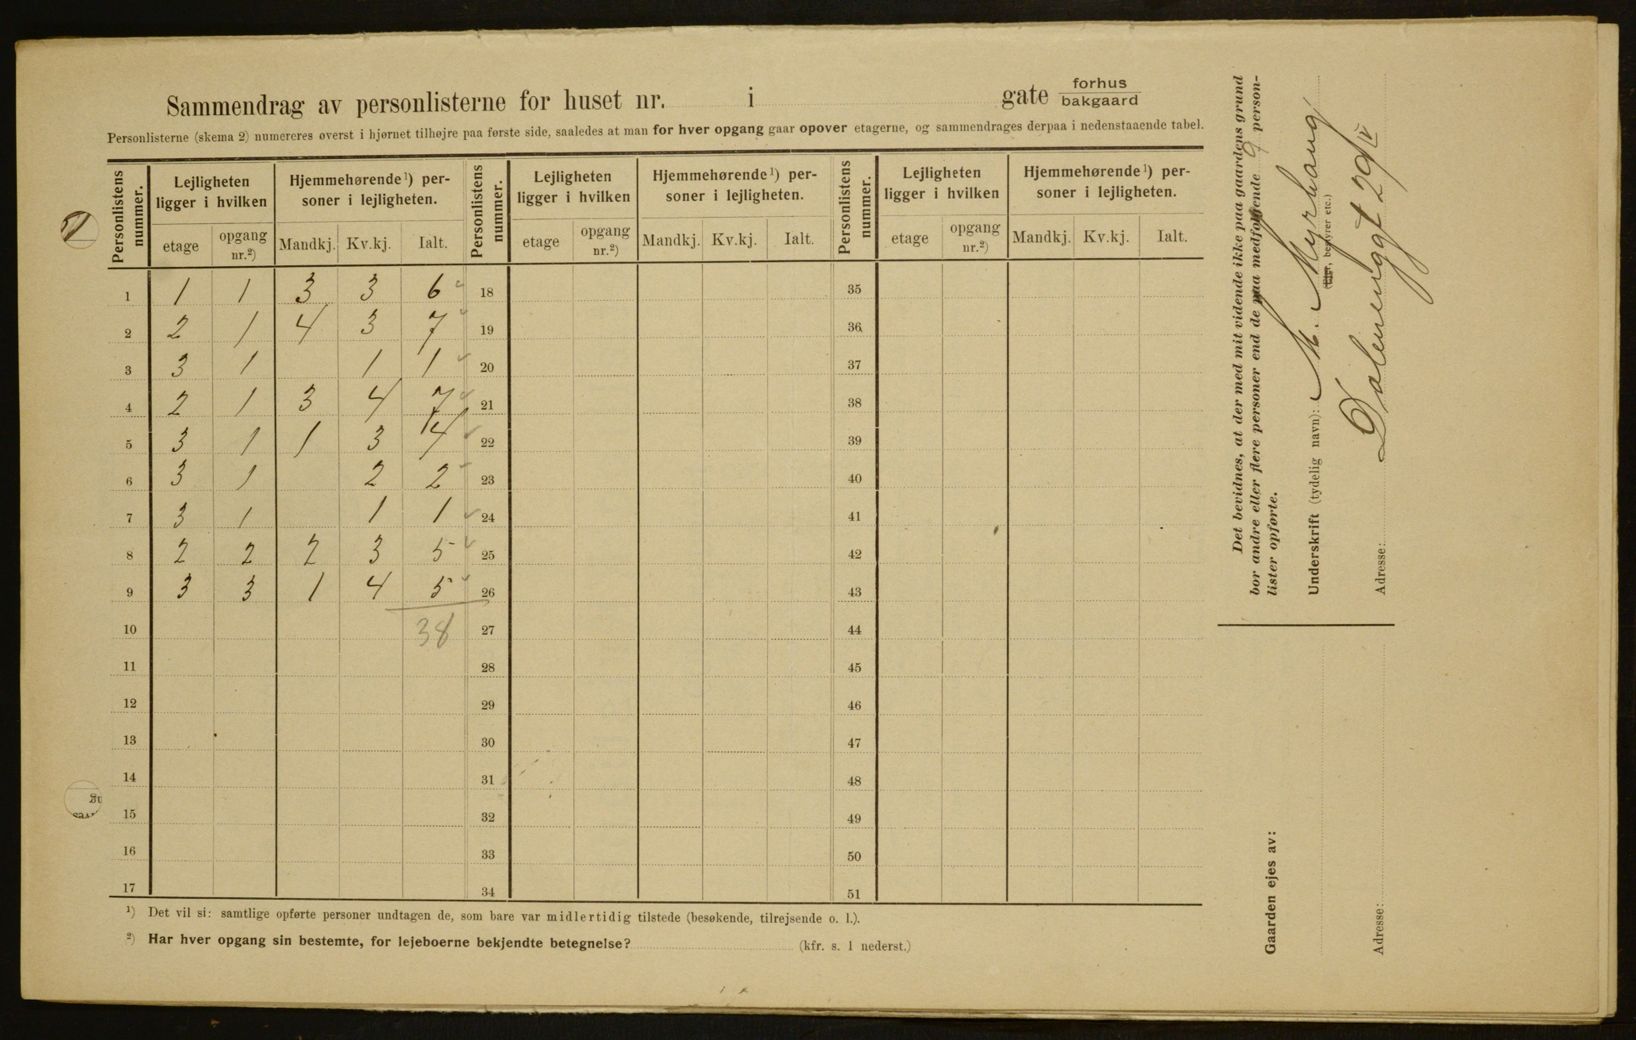 Sammendrag av personlisterne for huset nr. i gate forhus
bakgaard
Personlisterne (skema 2) numereres øverst i hjørnet tilhøjre paa første side, saaledes at man for hver opgang gaar opover etagerne, og sammendrages derpaa i nedenstaaende tabel.
Personlistens nummer. Lejligheten ligger i hvilken Hjemmehørende¹) personer i lejligheten. Personlistens nummer. Lejligheten ligger i hvilken Hjemmehørende¹) personer i lejligheten. Personlistens nummer. Lejligheten ligger i hvilken Hjemmehørende¹) personer i lejligheten.
etage opgang nr.²) Mandkj. Kv.kj. Ialt. etage opgang nr.²) Mandkj. Kv.kj. Ialt. etage opgang nr.²) Mandkj. Kv.kj. Ialt.
1 1 1 3 3 6 18 35
2 2 1 4 3 7 19 36
3 3 1 1 1 20 37
4 2 1 3 4 7 21 38
5 3 1 1 3 4 22 39
6 3 1 2 2 23 40
7 3 1 1 1 24 41
8 2 2 2 3 5 25 42
9 3 3 1 4 5 26 43
10 38 27 44
11 28 45
12 29 46
13 30 47
14 31 48
15 32 49
16 33 50
17 34 51
¹) Det vil si: samtlige opførte personer undtagen de, som bare var midlertidig tilstede (besøkende, tilrejsende o. l.).
²) Har hver opgang sin bestemte, for lejeboerne bekjendte betegnelse? (kfr. s. 1 nederst.)
Det bevidnes, at der med mit vidende ikke paa gaardens grund
bor andre eller flere personer end de paa medfølgende 9 person-
lister opførte.
Underskrift (tydelig navn): M. Myrhaug
(Eier, bestyrer etc.)
Adresse: Dalenenggt 20 IV
Gaarden ejes av:
Adresse: